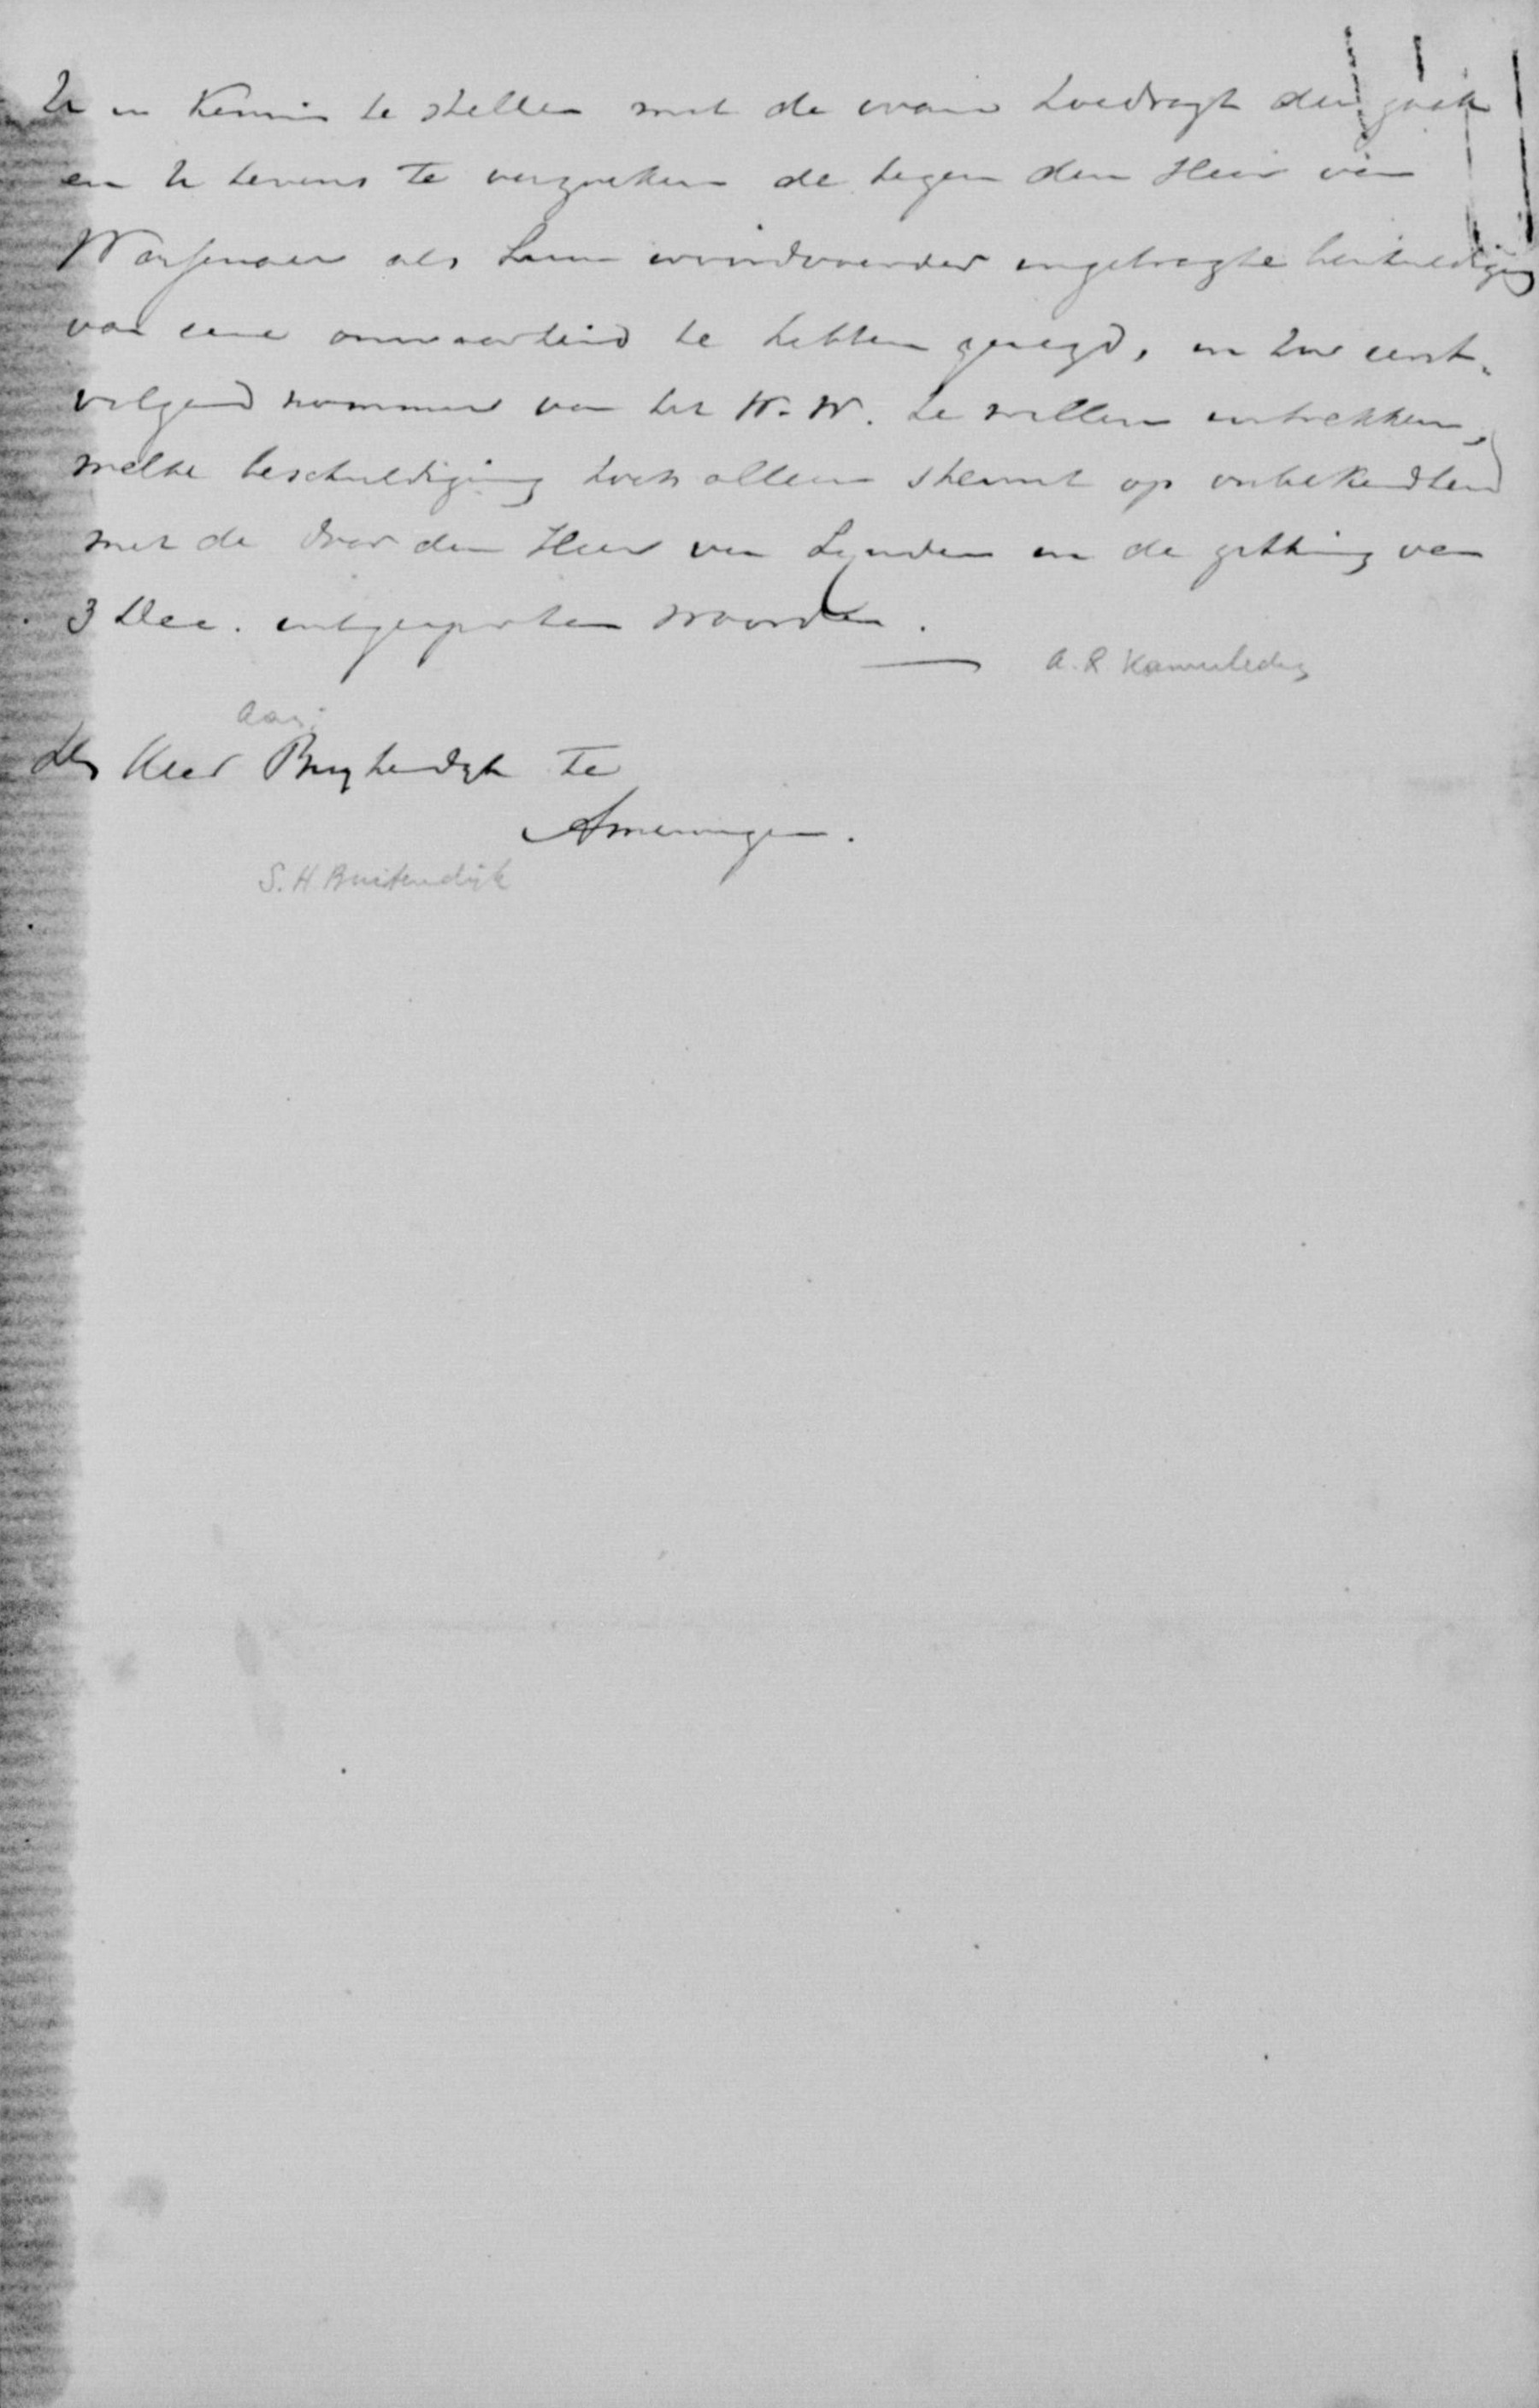 U in kennis te stellen met de ware toedragt der zaak
en U tevens te verzoeken de tegen den Heer van
Wassenaer als hun woordvoerder ingebragte beschuldiging
van eene onwaarheid te hebben gezegd, in Uw eerst-
volgend nommer van het W. W. te willen intrekken,
welke beschuldiging toch alleen steunt op onbekendheid
met de door den Heer van Lynden in de zitting van
3 Dec. uitgesproken woorden.
A. R. Kamerleden
Aan
den Heer Buytendyk te
Amerongen.
S. H. Buitendijk